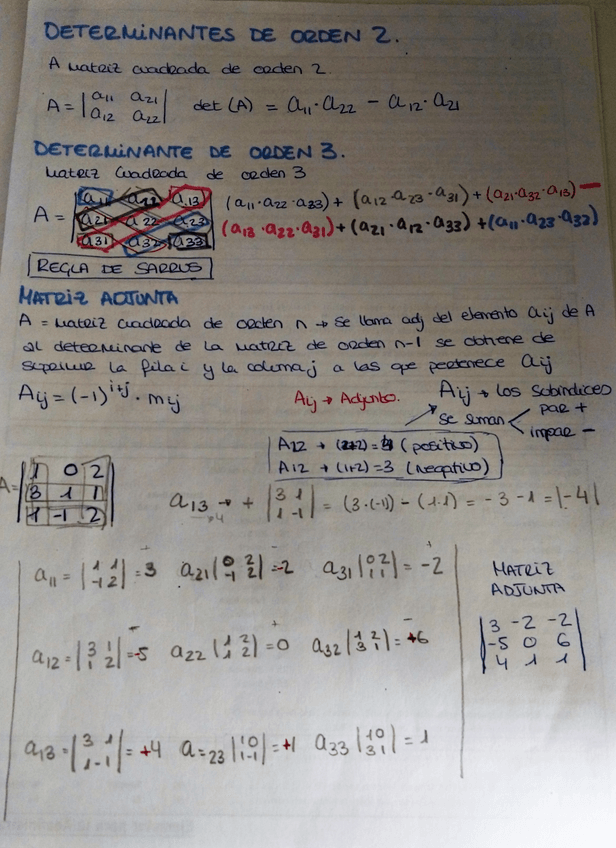 DETERMINANTES DE ORDEN 2.
A matriz cuadrada de orden 2.
A = |a11 a21| det (A) = a11·a22 - a12·a21
|a12 a22|
DETERMINANTE DE ORDEN 3.
Matriz Cuadrada de orden 3
A = |a11 a22 a13| (a11·a22·a33) + (a12·a23·a31) + (a21·a32·a13) -
|a21 a22 a23| (a13·a22·a31) + (a21·a12·a33) + (a11·a23·a32)
|a31 a32 a33|
REGLA DE SARRUS
MATRIZ ADJUNTA
A = matriz cuadrada de orden n → Se llama adj del elemento aij de A
al determinante de la matriz de orden n-1 se obtiene de
suprimir la fila i y la columna j a las que pertenece aij
Aij = (-1)^i+j · mij
Aij → Adjunto.
Aij → los subíndices
se suman < par +
impar -
A22 → (2+2) = 4 (positivo)
A12 → (1+2) = 3 (negativo)
A = |1 0 2|
|3 1 1|
|1 -1 2|
a13 → + |3 1| = (3·(-1)) - (1·1) = -3 -1 = |-4|
|1 -1|
a11 = |1 1| = 3 a21 |0 2| = -2 a31 |0 2| = -2
|-1 2| |-1 2| |1 1|
a12 = |3 1| = -5 a22 |1 2| = 0 a32 |1 2| = +6
|1 2| |1 2| |3 1|
a13 = |3 1| = +4 a=23 |1 0| = +1 a33 |1 0| = 1
|1 -1| |1 -1| |3 1|
MATRIZ
ADJUNTA
|3 -2 -2|
|-5 0 6|
|4 1 1|